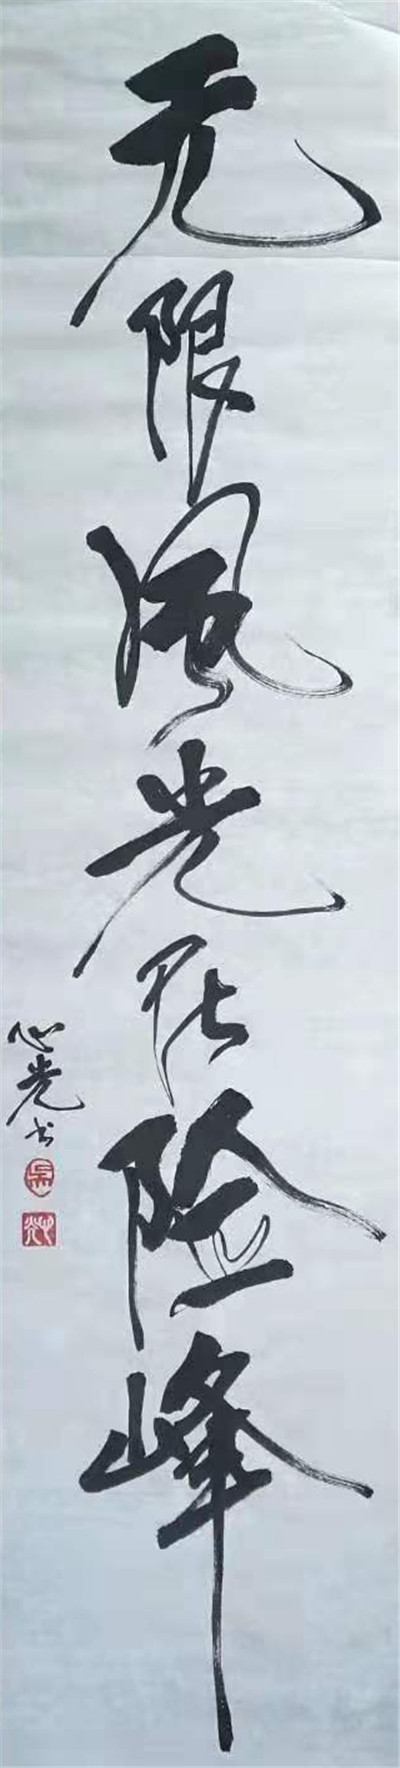 无限风光在险峰
心光书